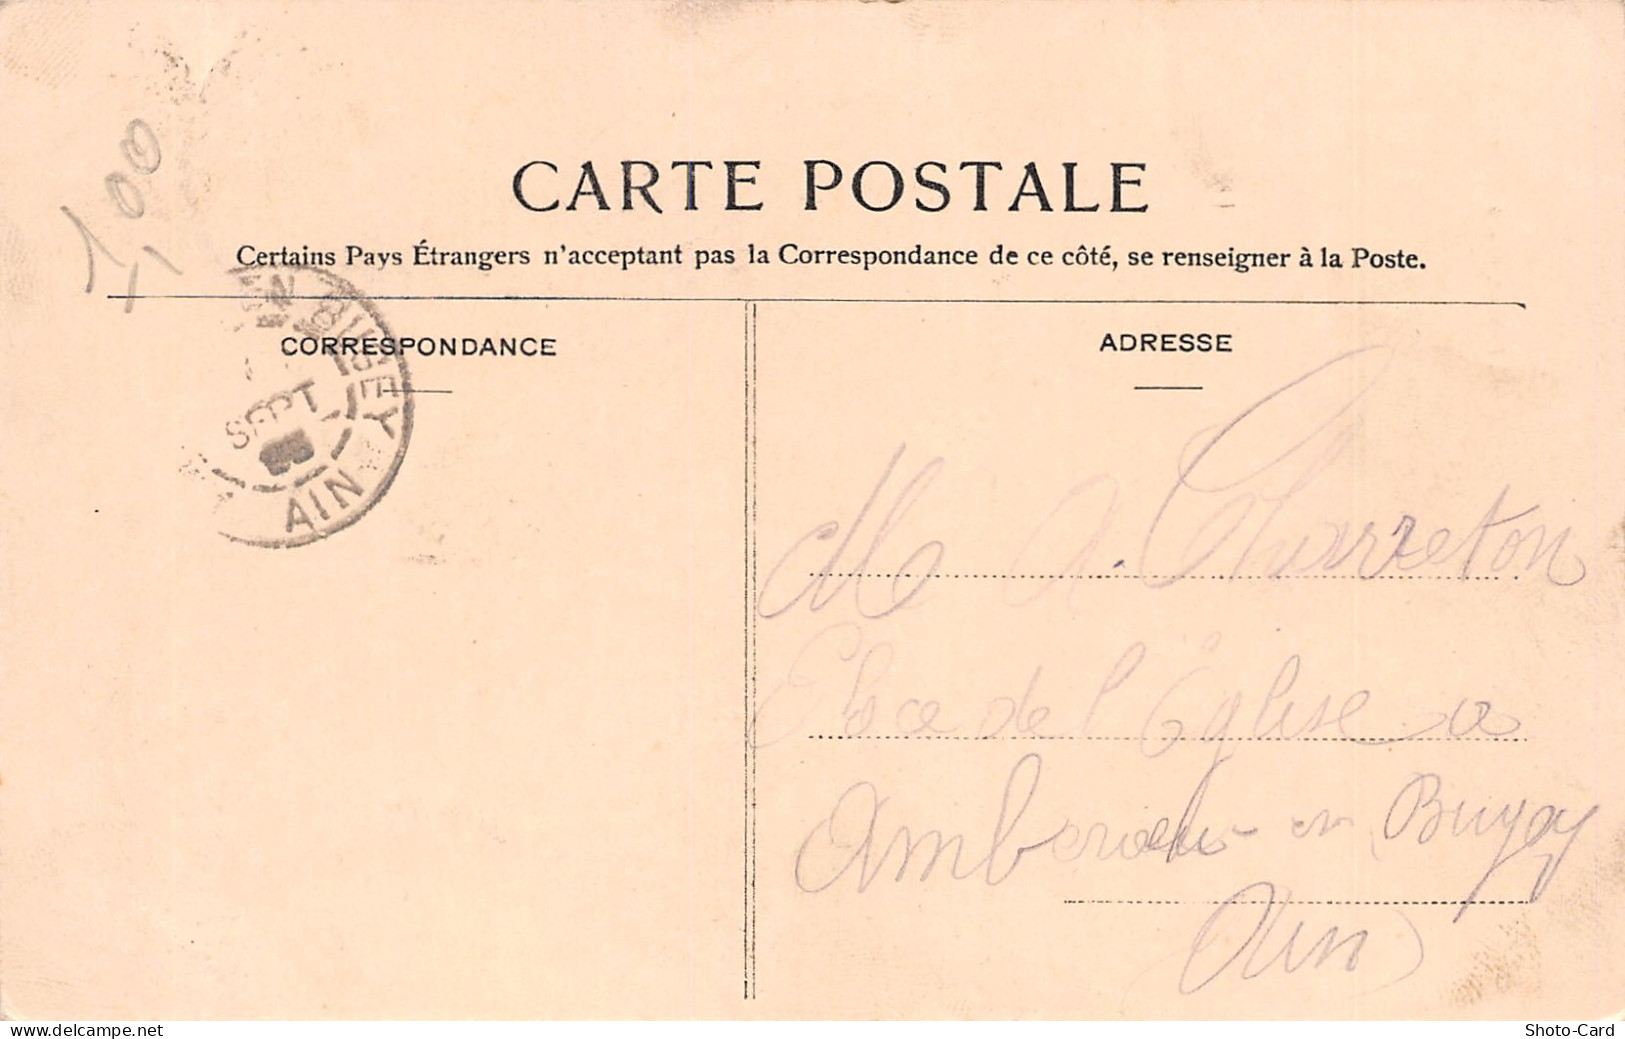 1,00
CARTE POSTALE
Certains Pays Étrangers n'acceptant pas la Correspondance de ce côté, se renseigner à la Poste.
CORRESPONDANCE
EN BUGEY
SEPT
AIN
ADRESSE
M A. Charreton
Place de l'Église a
Amberieu-en Bugey
Ain
www.delcampe.net
Shoto-Card